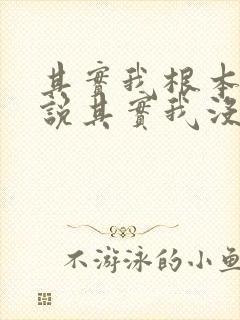 其實我根本
說其實我沒
不游泳的小魚